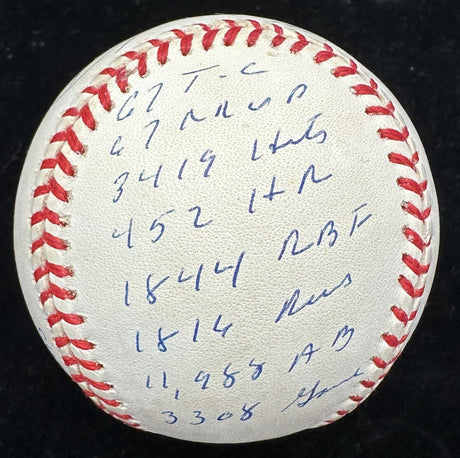 67 T-C
67 MVP
3419 Hits
452 HR
1844 RBI
1816 Runs
11,988 AB
3308 Games